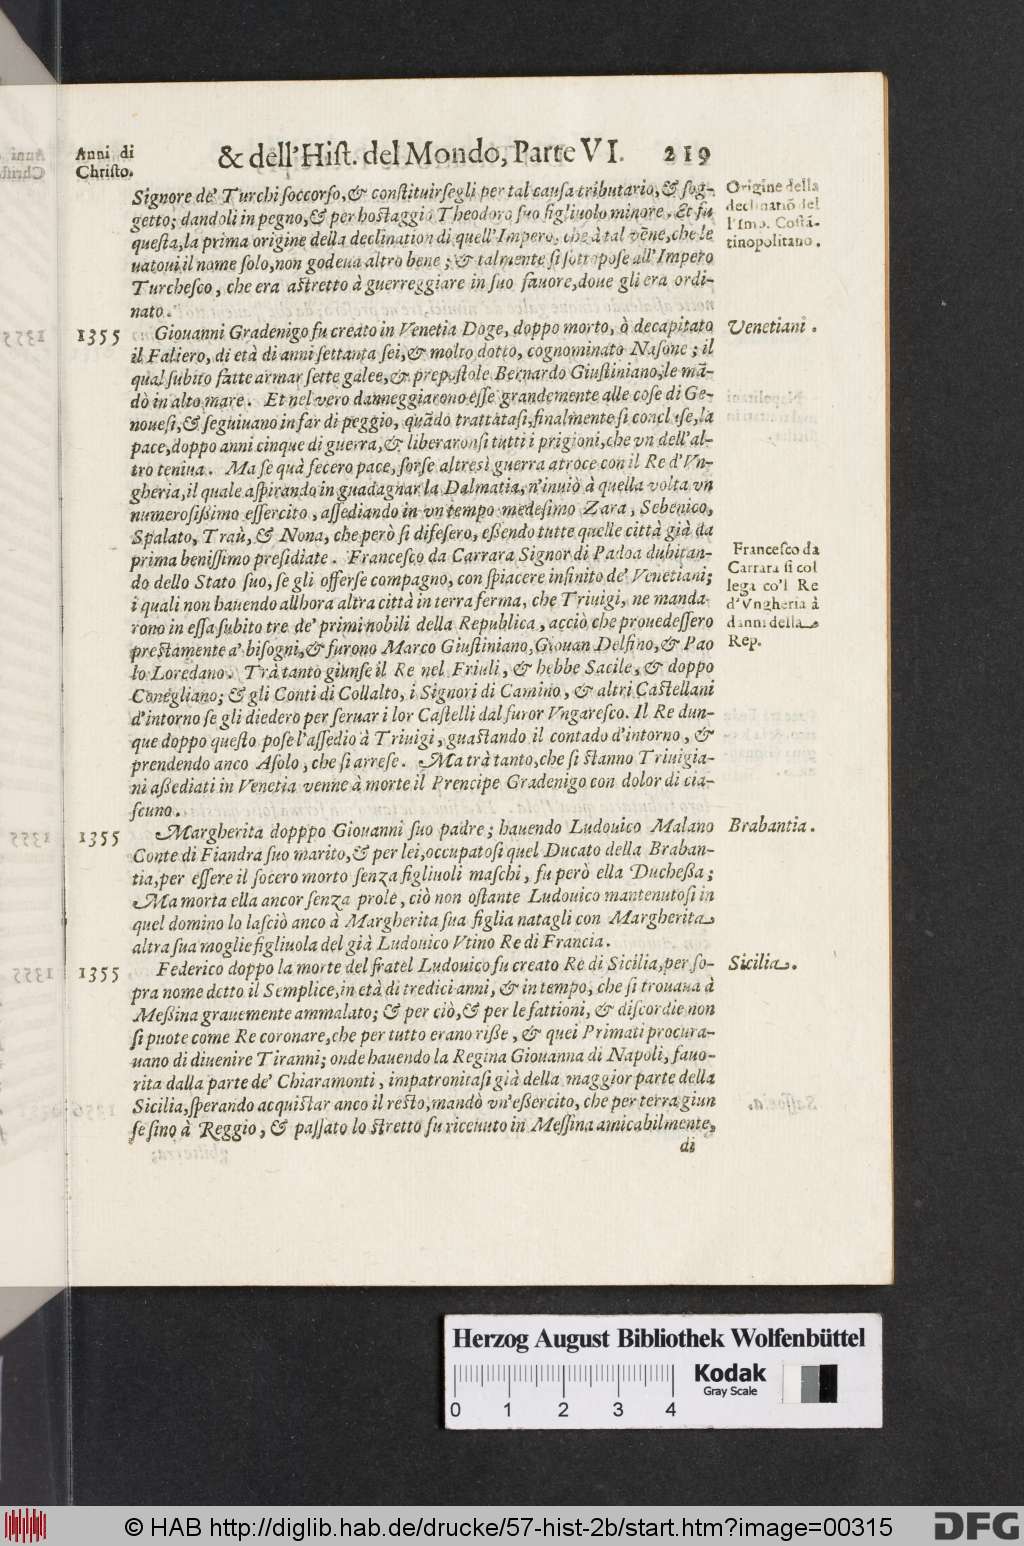 Anni di
Chriſto.
& dell'Hiſt. del Mondo, Parte VI. 219
Signore de' Turchi ſoccorſo, & conſtituirſegli per tal cauſa tributario, & ſog-
getto; dandoli in pegno, & per hoſtaggio Theodoro ſuo figliuolo minore. Et fu
queſta, la prima origine della declination di quell'Impero, che à tal vẽne, che le
uatoui il nome ſolo, non godeua altro bene; & talmente ſi ſottopoſe all'Impero
Turcheſco, che era aſtretto à guerreggiare in ſuo fauore, doue gli era ordi-
nato.
Origine della
declinatiõ del
l'Imp. Coſtã-
tinopolitano.
1355 Giouanni Gradenigo fu creato in Venetia Doge, doppo morto, ò decapitato
Venetiani.
il Faliero, di età di anni ſettanta ſei, & molto dotto, cognominato Naſone; il
qual ſubito fatte armar ſette galee, & prepoſtole Bernardo Giuſtiniano, le mã-
dò in alto mare. Et nel vero danneggiarono eſſe grandemente alle coſe di Ge-
noueſi, & ſeguiuano in far di peggio, quãdo trattataſi, finalmente ſi concluſe, la
pace, doppo anni cinque di guerra, & liberaronſi tutti i prigioni, che vn dell'al-
tro teniua. Ma ſe quà fecero pace, ſorſe altresì guerra atroce con il Re d'Vn-
gheria, il quale aſpirando in guadagnar la Dalmatia, n'inuiò à quella volta vn
numeroſiſſimo eſſercito, aſſediando in vn tempo medeſimo Zara, Sebenico,
Spalato, Traù, & Nona, che però ſi difeſero, eſſendo tutte quelle città già da
prima beniſſimo preſidiate. Franceſco da Carrara Signor di Padoa dubitan-
do dello Stato ſuo, ſe gli offerſe compagno, con ſpiacere infinito de' Venetiani;
i quali non hauendo allhora altra città in terra ferma, che Triuigi, ne manda-
rono in eſſa ſubito tre de' primi nobili della Republica, acciò che prouedeſſero
preſtamente a' biſogni, & furono Marco Giuſtiniano, Giouan Delfino, & Pao
lo Loredano. Trà tanto giunſe il Re nel Friuli, & hebbe Sacile, & doppo
Conegliano; & gli Conti di Collalto, i Signori di Camino, & altri Caſtellani
d'intorno ſe gli diedero per ſeruar i lor Caſtelli dal furor Vngareſco. Il Re dun-
que doppo queſto poſe l'aſſedio à Triuigi, guaſtando il contado d'intorno, &
prendendo anco Aſolo, che ſi arreſe. Ma trà tanto, che ſi ſtanno Triuigia-
ni aſſediati in Venetia venne à morte il Prencipe Gradenigo con dolor di cia-
ſcuno.
Franceſco da
Carrara ſi col
lega co'l Re
d'Vngheria à
danni della
Rep.
1355 Margherita dopppo Giouanni ſuo padre; hauendo Ludouico Malano
Brabantia.
Conte di Fiandra ſuo marito, & per lei, occupatoſi quel Ducato della Braban-
tia, per eſſere il ſocero morto ſenza figliuoli maſchi, fu però ella Ducheſſa;
Ma morta ella ancor ſenza prole, ciò non oſtante Ludouico mantenutoſi in
quel domino lo laſciò anco à Margherita ſua figlia natagli con Margherita
altra ſua moglie figliuola del già Ludouico Vtino Re di Francia.
1355 Federico doppo la morte del fratel Ludouico fu creato Re di Sicilia, per ſo-
Sicilia.
pra nome detto il Semplice, in età di tredici anni, & in tempo, che ſi trouaua à
Meſſina grauemente ammalato; & per ciò, & per le fattioni, & diſcordie non
ſi puote come Re coronare, che per tutto erano riſſe, & quei Primati procura-
uano di diuenire Tiranni; onde hauendo la Regina Giouanna di Napoli, fauo-
rita dalla parte de' Chiaramonti, impatronitaſi già della maggior parte della
Sicilia, ſperando acquiſtar anco il reſto, mandò vn'eſſercito, che per terra giun
ſe ſino à Reggio, & paſſato lo ſtretto fu riceuuto in Meſſina amicabilmente,
di
Herzog August Bibliothek Wolfenbüttel
Kodak
Gray Scale
0 1 2 3 4
© HAB http://diglib.hab.de/drucke/57-hist-2b/start.htm?image=00315
DFG